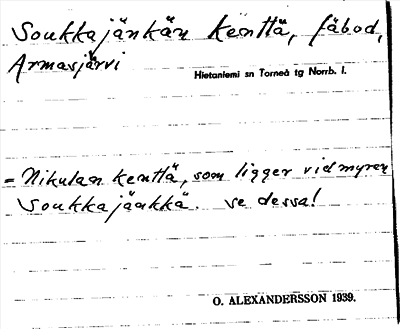 Soukkajänkän kenttä, fäbod,
Armasjärvi
Hietaniemi sn Torneå tg Norrb. l.
= Nikulan kenttä, som ligger vid myren
Soukkajänkkä. se dessa!
O. ALEXANDERSSON 1939.